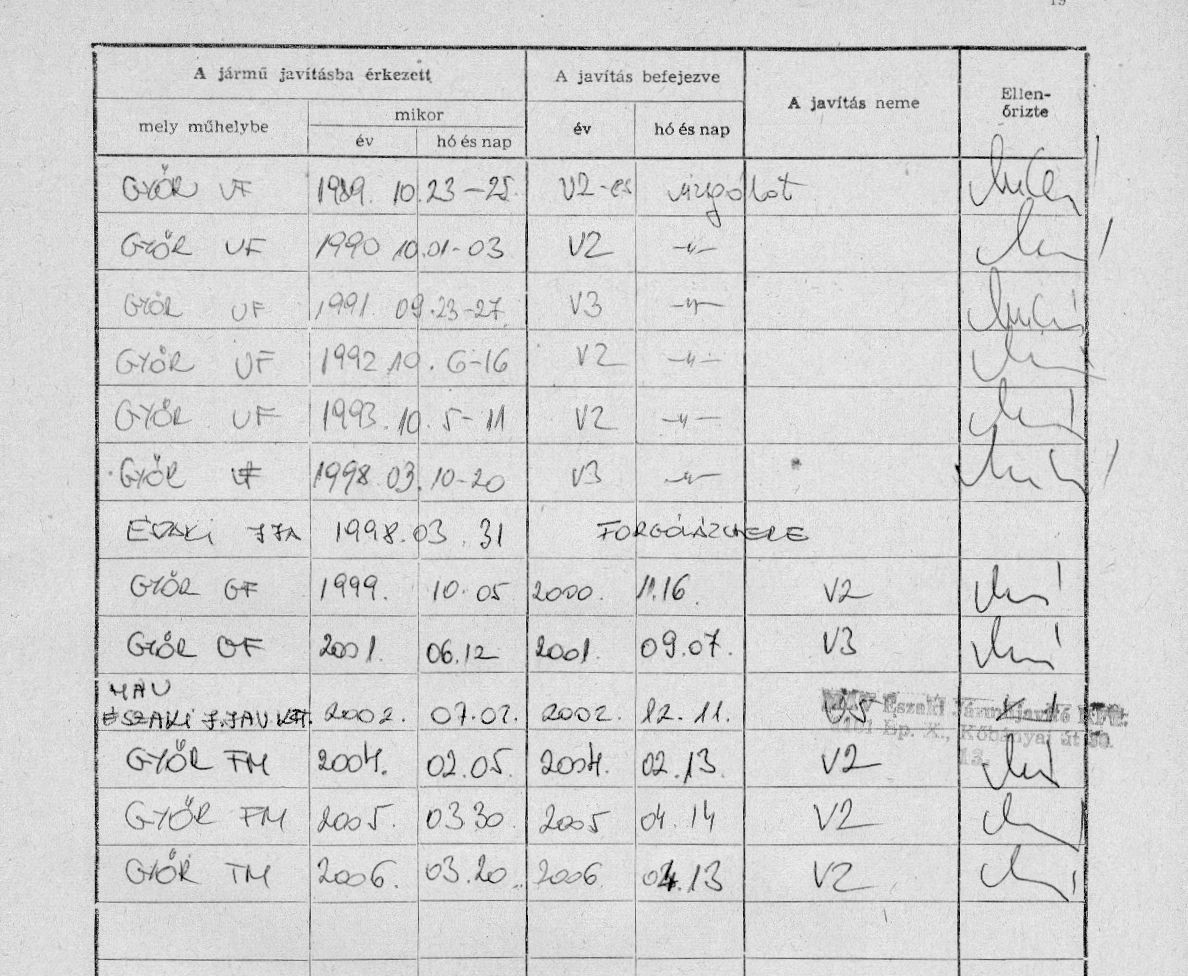 19
A jármű javításba érkezett
A javítás befejezve
A javítás neme
Ellen-
őrizte
mely műhelybe
mikor
év
hó és nap
év
hó és nap
GYŐR VF 1989. 10.23-25. V2-es vizsgálat
GYŐR VF 1990 10.01-03 V2 -〃-
GYŐR VF 1991. 09.23-27. V3 -〃-
GYŐR VF 1992.10. 6-16 V2 -〃-
GYŐR VF 1993.10. 5-11 V2 -〃-
GYŐR VF 1998.03. 10-20 V3 -〃-
ÉSZAKI JJA 1998.03.31 FORGÓVÁZCSERE
GYŐR GF 1999. 10.05 2000. 11.16. V2
GYŐR GF 2001. 06.12 2001. 09.07. V3
MÁV
ÉSZAKI J.JAV KFT. 2002. 07.02. 2002. 12.11. V5
MÁV Északi Járműjavító Kft.
Bp. X., Kőbányai út 30.
13.
GYŐR FM 2004. 02.05. 2004. 02.13. V2
GYŐR FM 2005. 03.30. 2005 04.14 V2
GYŐR TM 2006. 03.20. 2006. 04.13 V2